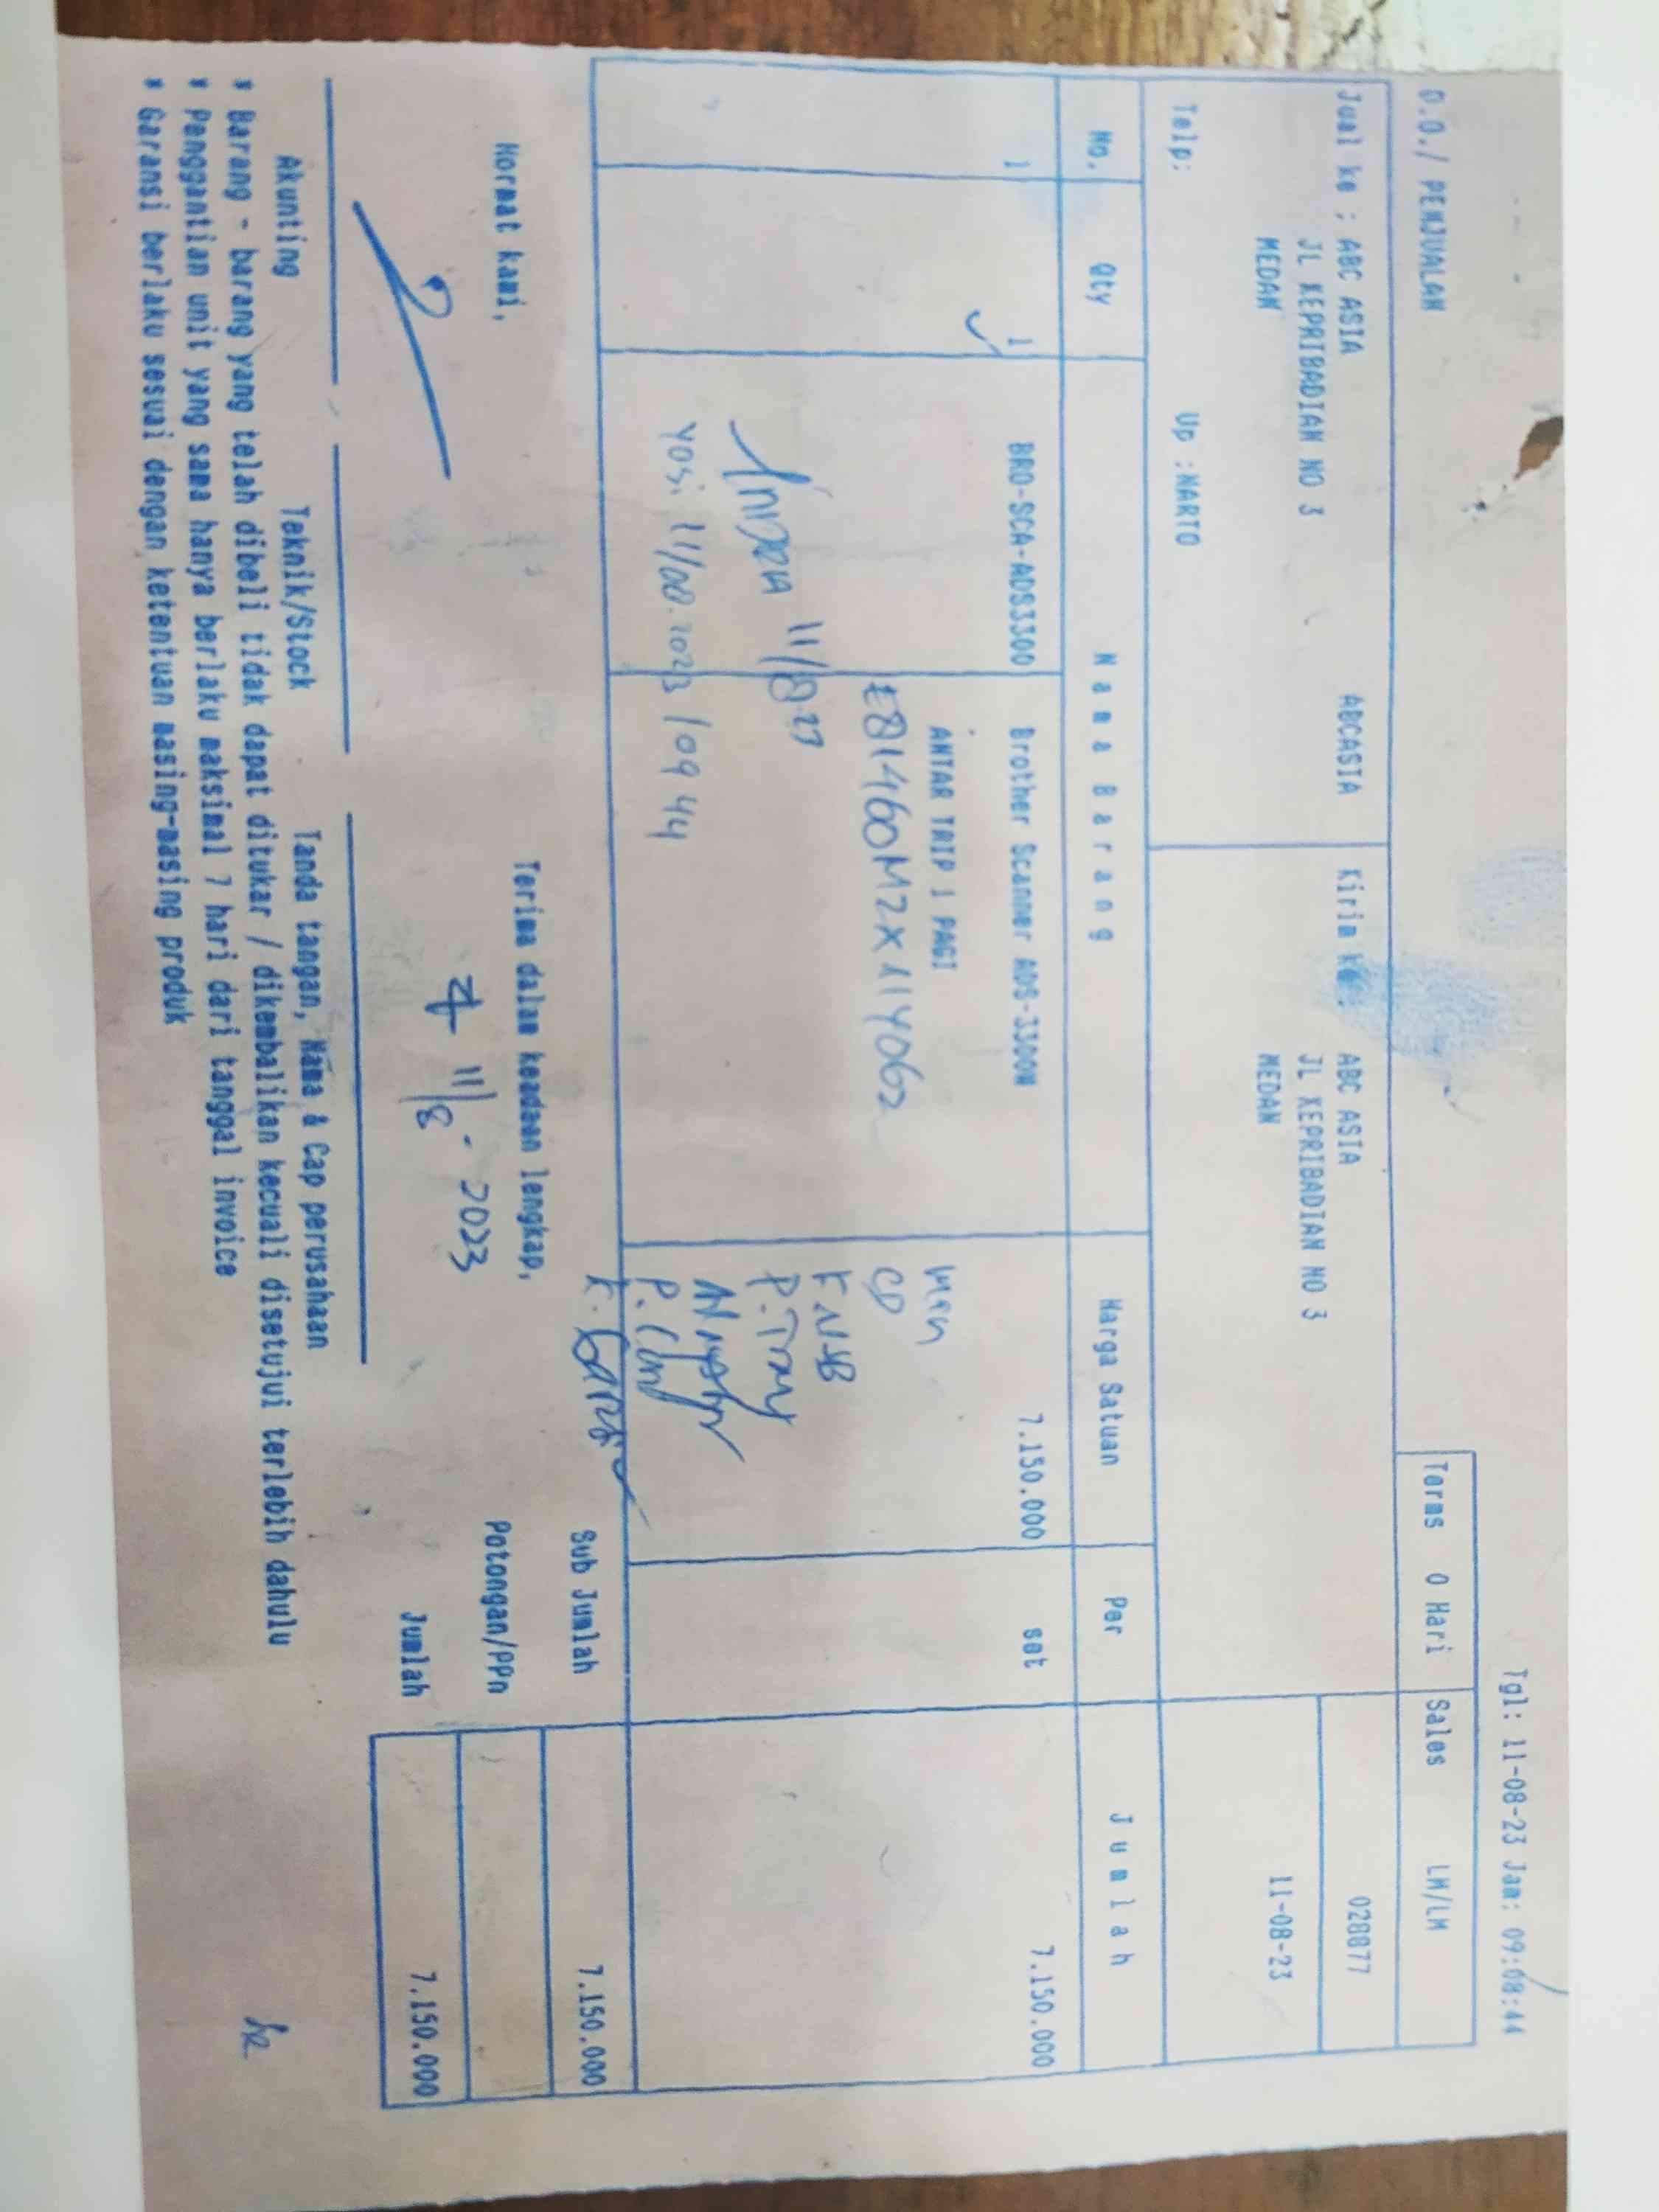 Tgl: 11-08-23 Jam: 09:08:44
D.O./ PENJUALAN
Terms 0 Hari Sales LM/LM
Jual ke : ABC ASIA ABCASIA Kirim ke: ABC ASIA 028877
JL KEPRIBADIAN NO 3 JL KEPRIBADIAN NO 3
MEDAN MEDAN 11-08-23
Telp: Up :NARTO
No. Qty Nama Barang Harga Satuan Per Jumlah
1 1 BRO-SCA-ADS3300 Brother Scanner ADS-3300W 7.150.000 set 7.150.000
ANTAR TRIP 1 PAGI
E81460M2X114062 CD
K. USB
11/8 23 P. Tray
Yosi 11/08.2023 / 09 44
K. Garansi
Sub Jumlah 7.150.000
Hormat kami, Terima dalam keadaan lengkap, Potongan/PPn
11/8 - 2023
Jumlah 7.150.000
Akunting Teknik/Stock Tanda tangan, Nama & Cap perusahaan
* Barang - barang yang telah dibeli tidak dapat ditukar / dikembalikan kecuali disetujui terlebih dahulu
* Penggantian unit yang sama hanya berlaku maksimal 7 hari dari tanggal invoice
* Garansi berlaku sesuai dengan ketentuan masing-masing produk